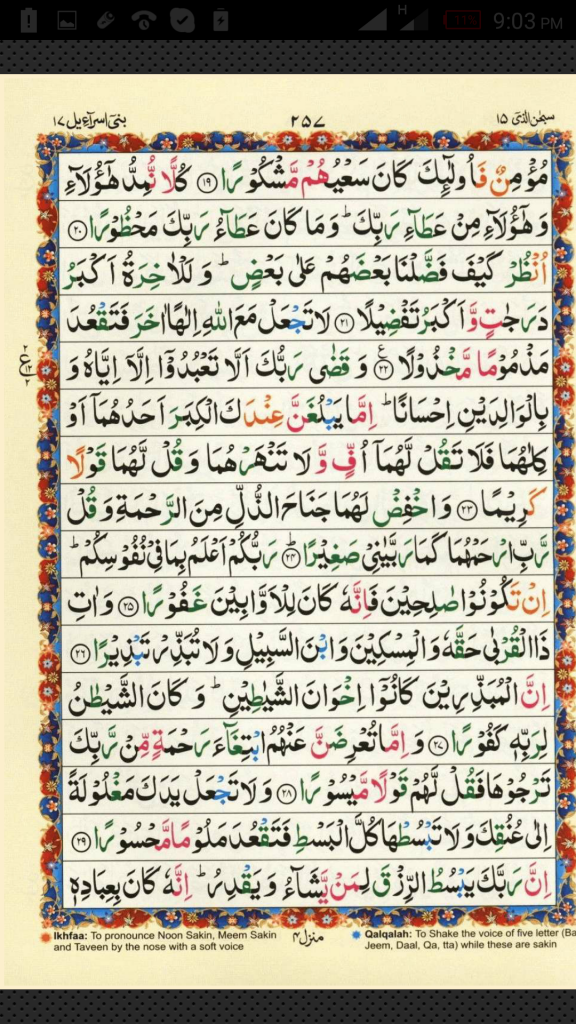 H 11% 9:03 PM
سبحٰن الذی ١٥ ٢٥٧ بنی اسرآءیل ١٧
مُؤْمِنٌ فَاُولٰٓئِكَ كَانَ سَعْيُهُمْ مَّشْكُوْرًا ١٩ كُلًّا نُّمِدُّ هٰٓؤُلَآءِ
وَ هٰٓؤُلَآءِ مِنْ عَطَآءِ رَبِّكَ ؕ وَ مَا كَانَ عَطَآءُ رَبِّكَ مَحْظُوْرًا ٢٠
اُنْظُرْ كَيْفَ فَضَّلْنَا بَعْضَهُمْ عَلٰى بَعْضٍ ؕ وَ لَلْاٰخِرَةُ اَكْبَرُ
دَرَجٰتٍ وَّ اَكْبَرُ تَفْضِيْلًا ٢١ لَا تَجْعَلْ مَعَ اللّٰهِ اِلٰهًا اٰخَرَ فَتَقْعُدَ
مَذْمُوْمًا مَّخْذُوْلًا ٢٢ ع وَ قَضٰى رَبُّكَ اَلَّا تَعْبُدُوْۤا اِلَّاۤ اِيَّاهُ وَ
٢ ع ١٢ ٢
بِالْوَالِدَيْنِ اِحْسَانًا ؕ اِمَّا يَبْلُغَنَّ عِنْدَكَ الْكِبَرَ اَحَدُهُمَاۤ اَوْ
كِلٰهُمَا فَلَا تَقُلْ لَّهُمَاۤ اُفٍّ وَّ لَا تَنْهَرْهُمَا وَ قُلْ لَّهُمَا قَوْلًا
كَرِيْمًا ٢٣ وَ اخْفِضْ لَهُمَا جَنَاحَ الذُّلِّ مِنَ الرَّحْمَةِ وَ قُلْ
رَّبِّ ارْحَمْهُمَا كَمَا رَبَّيٰنِيْ صَغِيْرًا ؕ ٢٤ رَبُّكُمْ اَعْلَمُ بِمَا فِيْ نُفُوْسِكُمْ ؕ
اِنْ تَكُوْنُوْا صٰلِحِيْنَ فَاِنَّهٗ كَانَ لِلْاَوَّابِيْنَ غَفُوْرًا ٢٥ وَ اٰتِ
ذَا الْقُرْبٰى حَقَّهٗ وَ الْمِسْكِيْنَ وَ ابْنَ السَّبِيْلِ وَ لَا تُبَذِّرْ تَبْذِيْرًا ٢٦
اِنَّ الْمُبَذِّرِيْنَ كَانُوْۤا اِخْوَانَ الشَّيٰطِيْنِ ؕ وَ كَانَ الشَّيْطٰنُ
لِرَبِّهٖ كَفُوْرًا ٢٧ وَ اِمَّا تُعْرِضَنَّ عَنْهُمُ ابْتِغَآءَ رَحْمَةٍ مِّنْ رَّبِّكَ
تَرْجُوْهَا فَقُلْ لَّهُمْ قَوْلًا مَّيْسُوْرًا ٢٨ وَ لَا تَجْعَلْ يَدَكَ مَغْلُوْلَةً
اِلٰى عُنُقِكَ وَ لَا تَبْسُطْهَا كُلَّ الْبَسْطِ فَتَقْعُدَ مَلُوْمًا مَّحْسُوْرًا ٢٩
اِنَّ رَبَّكَ يَبْسُطُ الرِّزْقَ لِمَنْ يَّشَآءُ وَ يَقْدِرُ ؕ اِنَّهٗ كَانَ بِعِبَادِهٖ
Ikhfaa: To pronounce Noon Sakin, Meem Sakin
and Taveen by the nose with a soft voice
منزل ٤
Qalqalah: To Shake the voice of five letter (Ba
Jeem, Daal, Qa, tta) while these are sakin